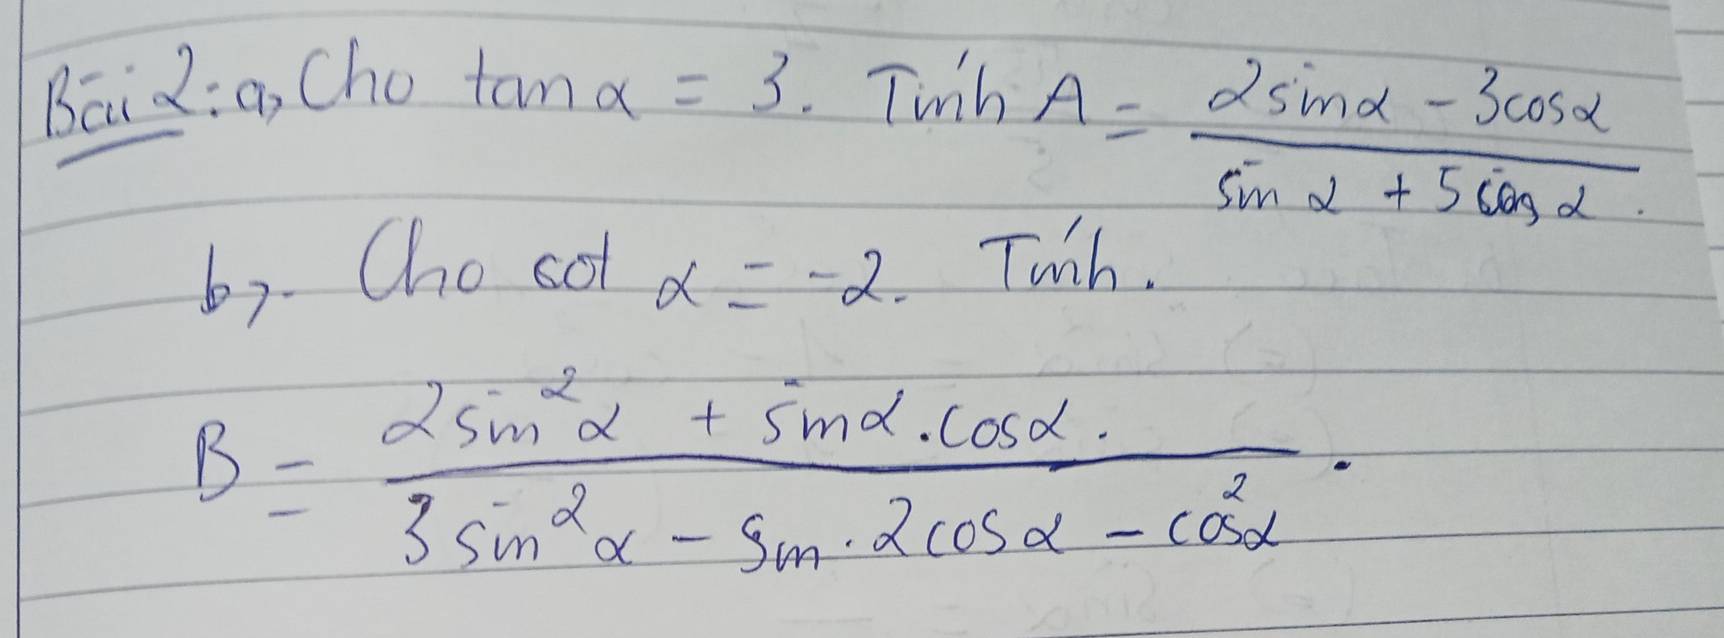 Bài 2: a, Cho tan α = 3. Tính A = (2sinα - 3cosα) / (sin α + 5 cos α).
b, Cho cot α = -2. Tính.
B = (2sin²α + sinα.cosα.) / (3 sin²α - sin . 2cosα - cos²α).